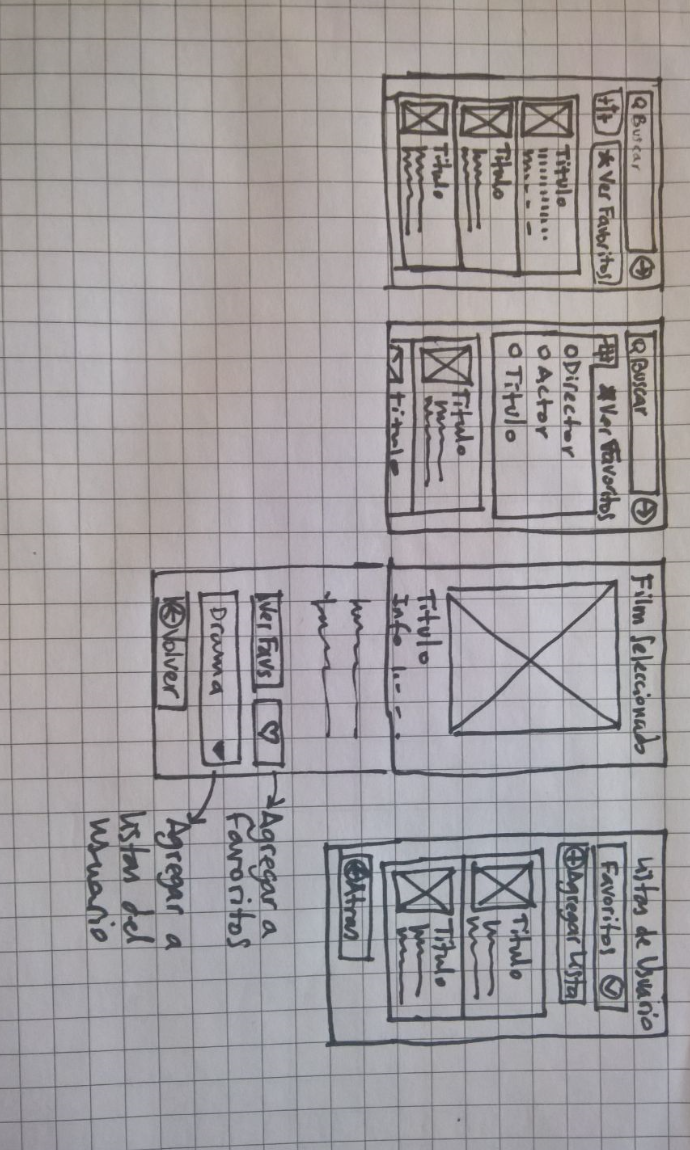 Buscar
Ver Favoritos
Titulo
Titulo
Titulo
Buscar
Ver Favoritos
Director
Actor
Titulo
Titulo
Titulo
Film Seleccionado
Titulo
Info
Ver Favs
Drama
Volver
Agregar a
favoritos
Agregar a
listas del
usuario
Listas de Usuario
Favoritos
Agregar Lista
Titulo
Titulo
Atras